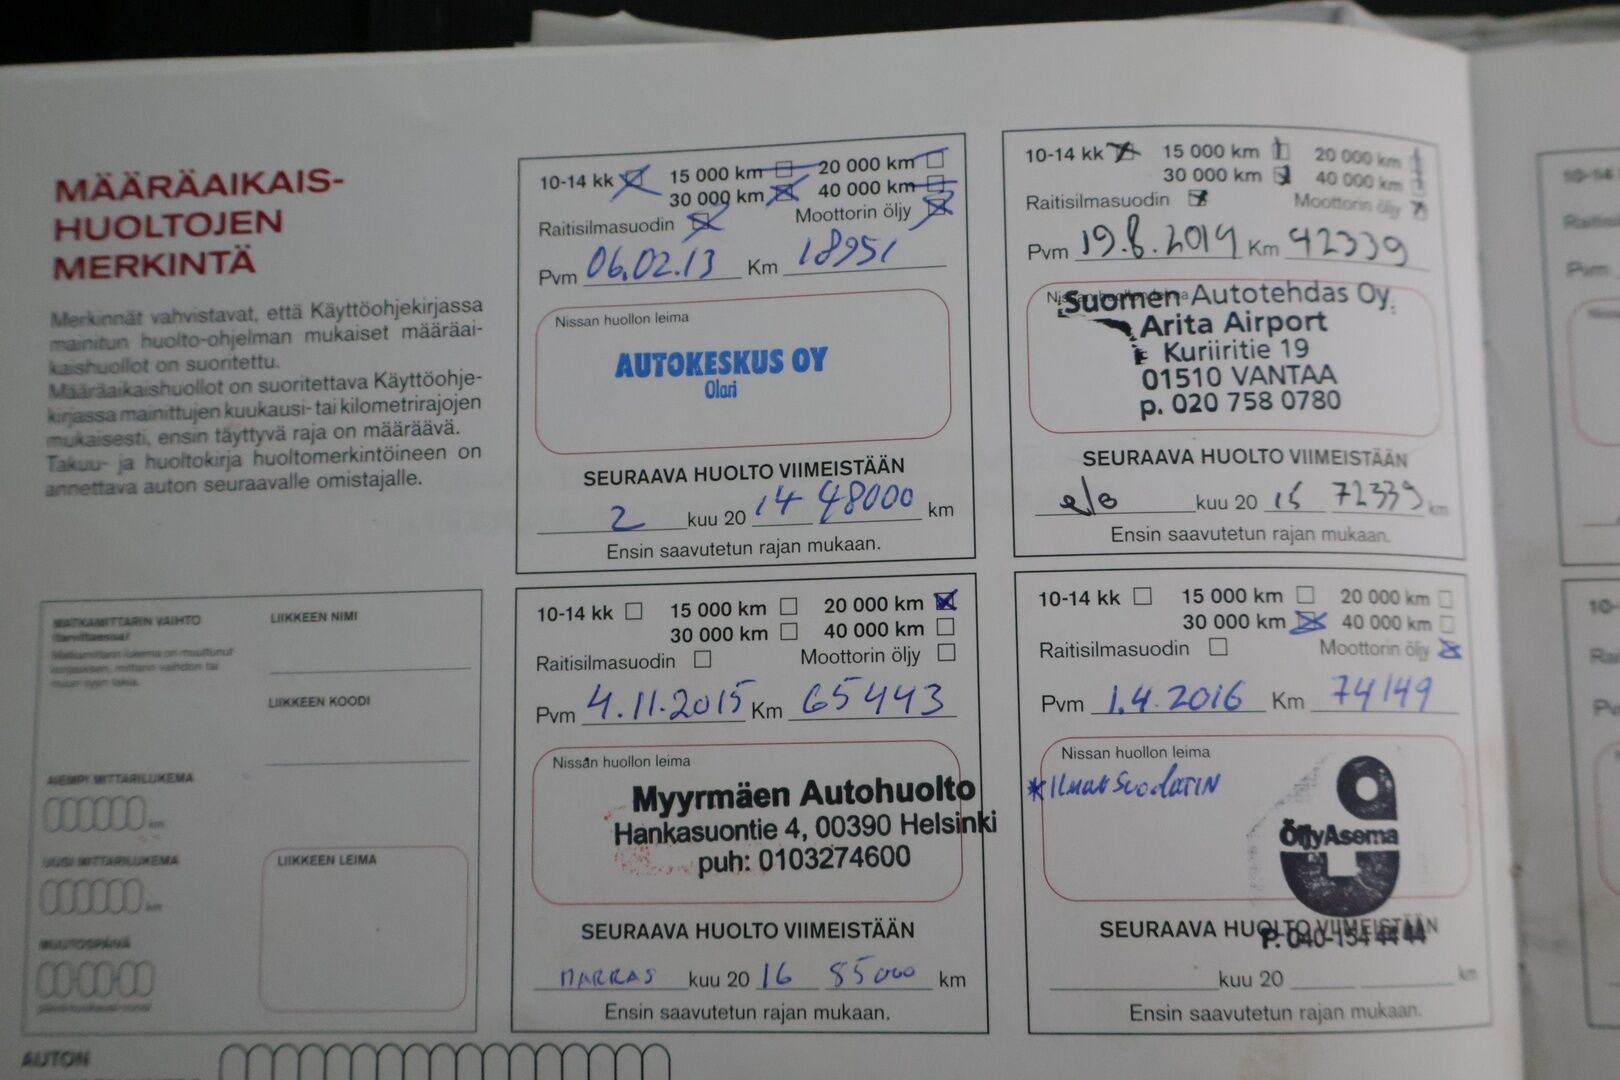 MÄÄRÄAIKAIS-
HUOLTOJEN
MERKINTÄ
Merkinnät vahvistavat, että Käyttöohjekirjassa
mainitun huolto-ohjelman mukaiset määräai-
kaishuollot on suoritettu.
Määräaikaishuollot on suoritettava Käyttöohje-
kirjassa mainittujen kuukausi- tai kilometrirajojen
mukaisesti, ensin täyttyvä raja on määräävä.
Takuu- ja huoltokirja huoltomerkintöineen on
annettava auton seuraavalle omistajalle.
10-14 kk 15 000 km 20 000 km
30 000 km 40 000 km
Raitisilmasuodin Moottorin öljy
Pvm 06.02.13 Km 18951
Nissan huollon leima
AUTOKESKUS OY
Olari
SEURAAVA HUOLTO VIIMEISTÄÄN
2 kuu 20 14 48000 km
Ensin saavutetun rajan mukaan.
10-14 kk 15 000 km 20 000 km
30 000 km 40 000 km
Raitisilmasuodin Moottorin öljy
Pvm 19.8.2014 Km 42339
Nissan huollon leima
Suomen Autotehdas Oy.
Arita Airport
Kuriiritie 19
01510 VANTAA
p. 020 758 0780
SEURAAVA HUOLTO VIIMEISTÄÄN
kuu 20 15 72339 km
Ensin saavutetun rajan mukaan.
MATKAMITTARIN VAIHTO
(tarvittaessa)
LIIKKEEN NIMI
LIIKKEEN KOODI
AIEMPI MITTARILUKEMA
km
UUSI MITTARILUKEMA
km
MUUTOSPÄIVÄ
LIIKKEEN LEIMA
10-14 kk 15 000 km 20 000 km
30 000 km 40 000 km
Raitisilmasuodin Moottorin öljy
Pvm 4.11.2015 Km 65443
Nissan huollon leima
Myyrmäen Autohuolto
Hankasuontie 4, 00390 Helsinki
puh: 0103274600
SEURAAVA HUOLTO VIIMEISTÄÄN
MARRAS kuu 20 16 85000 km
Ensin saavutetun rajan mukaan.
10-14 kk 15 000 km 20 000 km
30 000 km 40 000 km
Raitisilmasuodin Moottorin öljy
Pvm 1.4.2016 Km 74149
Nissan huollon leima
*ILMANSUODATIN
ÖljyAsema
SEURAAVA HUOLTO VIIMEISTÄÄN
P. 040-154 44 44
kuu 20 km
Ensin saavutetun rajan mukaan.
AUTON